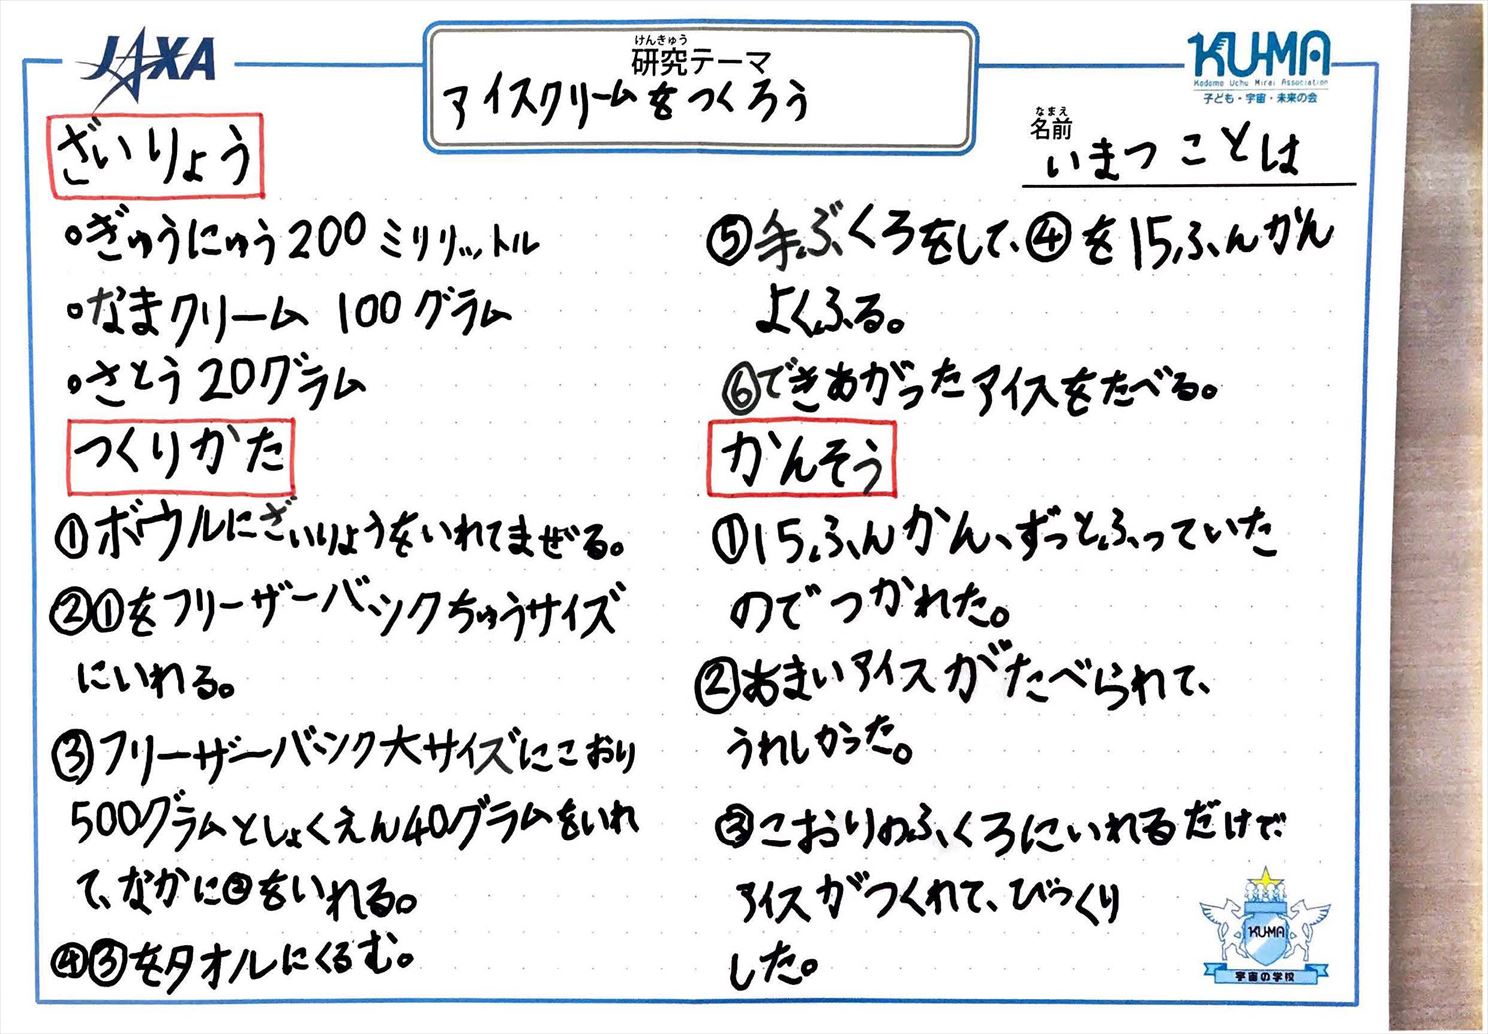 JAXA
けんきゅう
研究テーマ
アイスクリームをつくろう
KU-MA
Kodomo Uchu Mirai Association
子ども・宇宙・未来の会
なまえ
名前
いまつ ことは
ざいりょう
・ぎゅうにゅう200ミリリットル
・なまクリーム 100グラム
・さとう20グラム
つくりかた
①ボウルにざいりょうをいれてまぜる。
②①をフリーザーバックちゅうサイズ
にいれる。
③フリーザーバック大サイズにこおり
500グラムとしょくえん40グラムをいれ
て、なかに②をいれる。
④③をタオルにくるむ。
⑤手ぶくろをして、④を15ふんかん
よくふる。
⑥できあがったアイスをたべる。
かんそう
①15ふんかん、ずっとふっていた
のでつかれた。
②あまいアイスがたべられて、
うれしかった。
③こおりのふくろにいれるだけで
アイスがつくれて、びっくり
した。
KU-MA
宇宙の学校